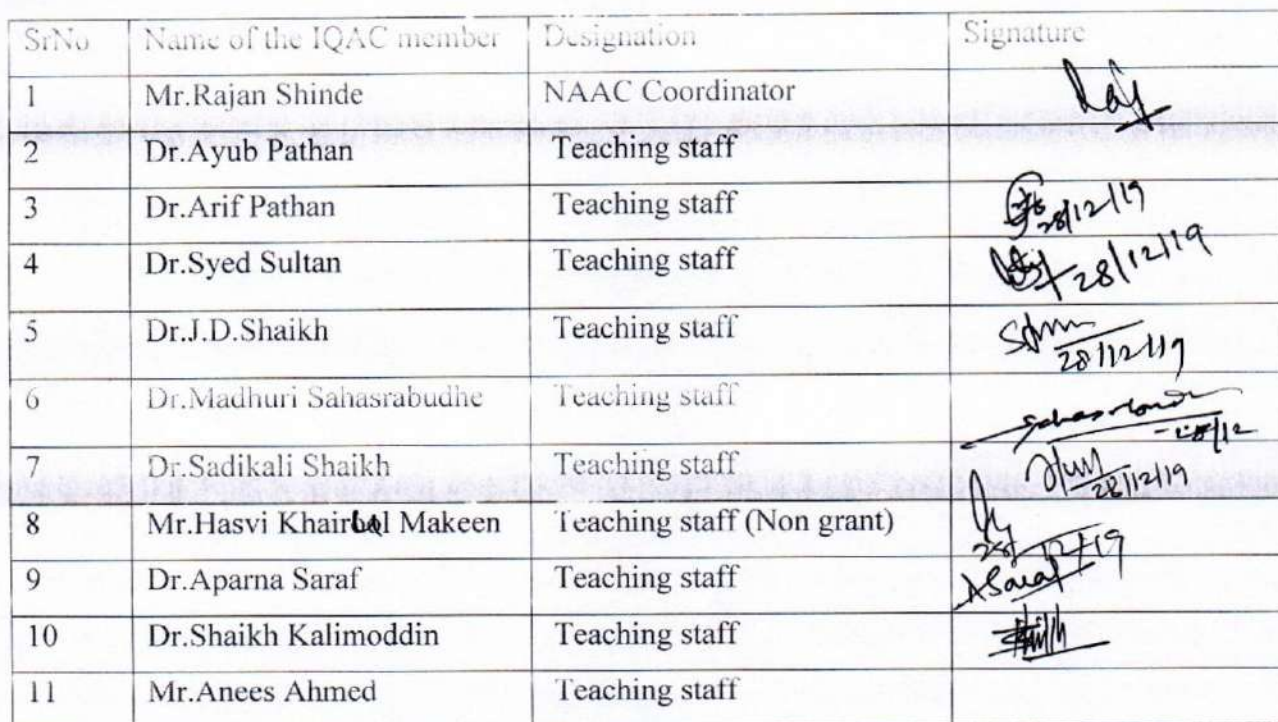 SrNo Name of the IQAC member Designation Signature
1 Mr.Rajan Shinde NAAC Coordinator
2 Dr.Ayub Pathan Teaching staff
3 Dr.Arif Pathan Teaching staff 28/12/19
4 Dr.Syed Sultan Teaching staff 28/12/19
5 Dr.J.D.Shaikh Teaching staff 28/12/19
6 Dr.Madhuri Sahasrabudhe Teaching staff 28/12
7 Dr.Sadikali Shaikh Teaching staff 28/12/19
8 Mr.Hasvi Makeen Teaching staff (Non grant) 28/12/19
9 Dr.Aparna Saraf Teaching staff ASaraf
10 Dr.Shaikh Kalimoddin Teaching staff
11 Mr.Anees Ahmed Teaching staff